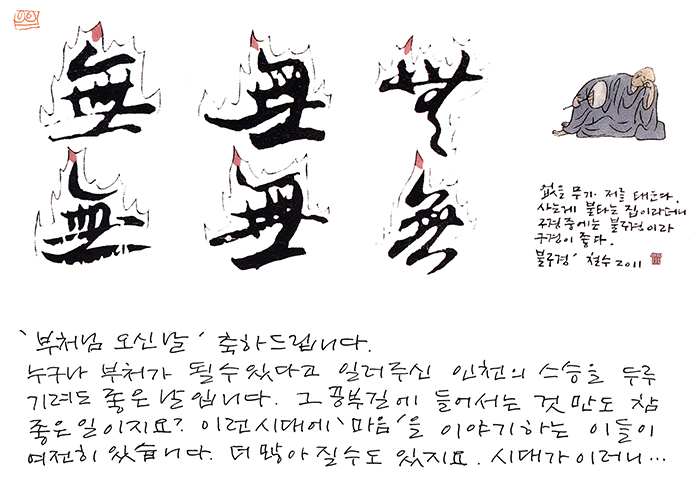 無 無 無
無 無 無
없을 무가 저를 태운다.
사는게 불타는 집이라더니
구경중에는 불구경이라
구경이 좋다.
불구경' 철수 2011
'부처님 오신날' 축하드립니다.
누구나 부처가 될 수 있다고 일러주신 인천의 스승을 두루
기려도 좋은 날입니다. 그 공부길에 들어서는 것만도 참
좋은 일이지요? 이런시대에 '마음'을 이야기하는 이들이
여전히 있습니다. 더 많아질수도 있지요. 시대가 이러니...